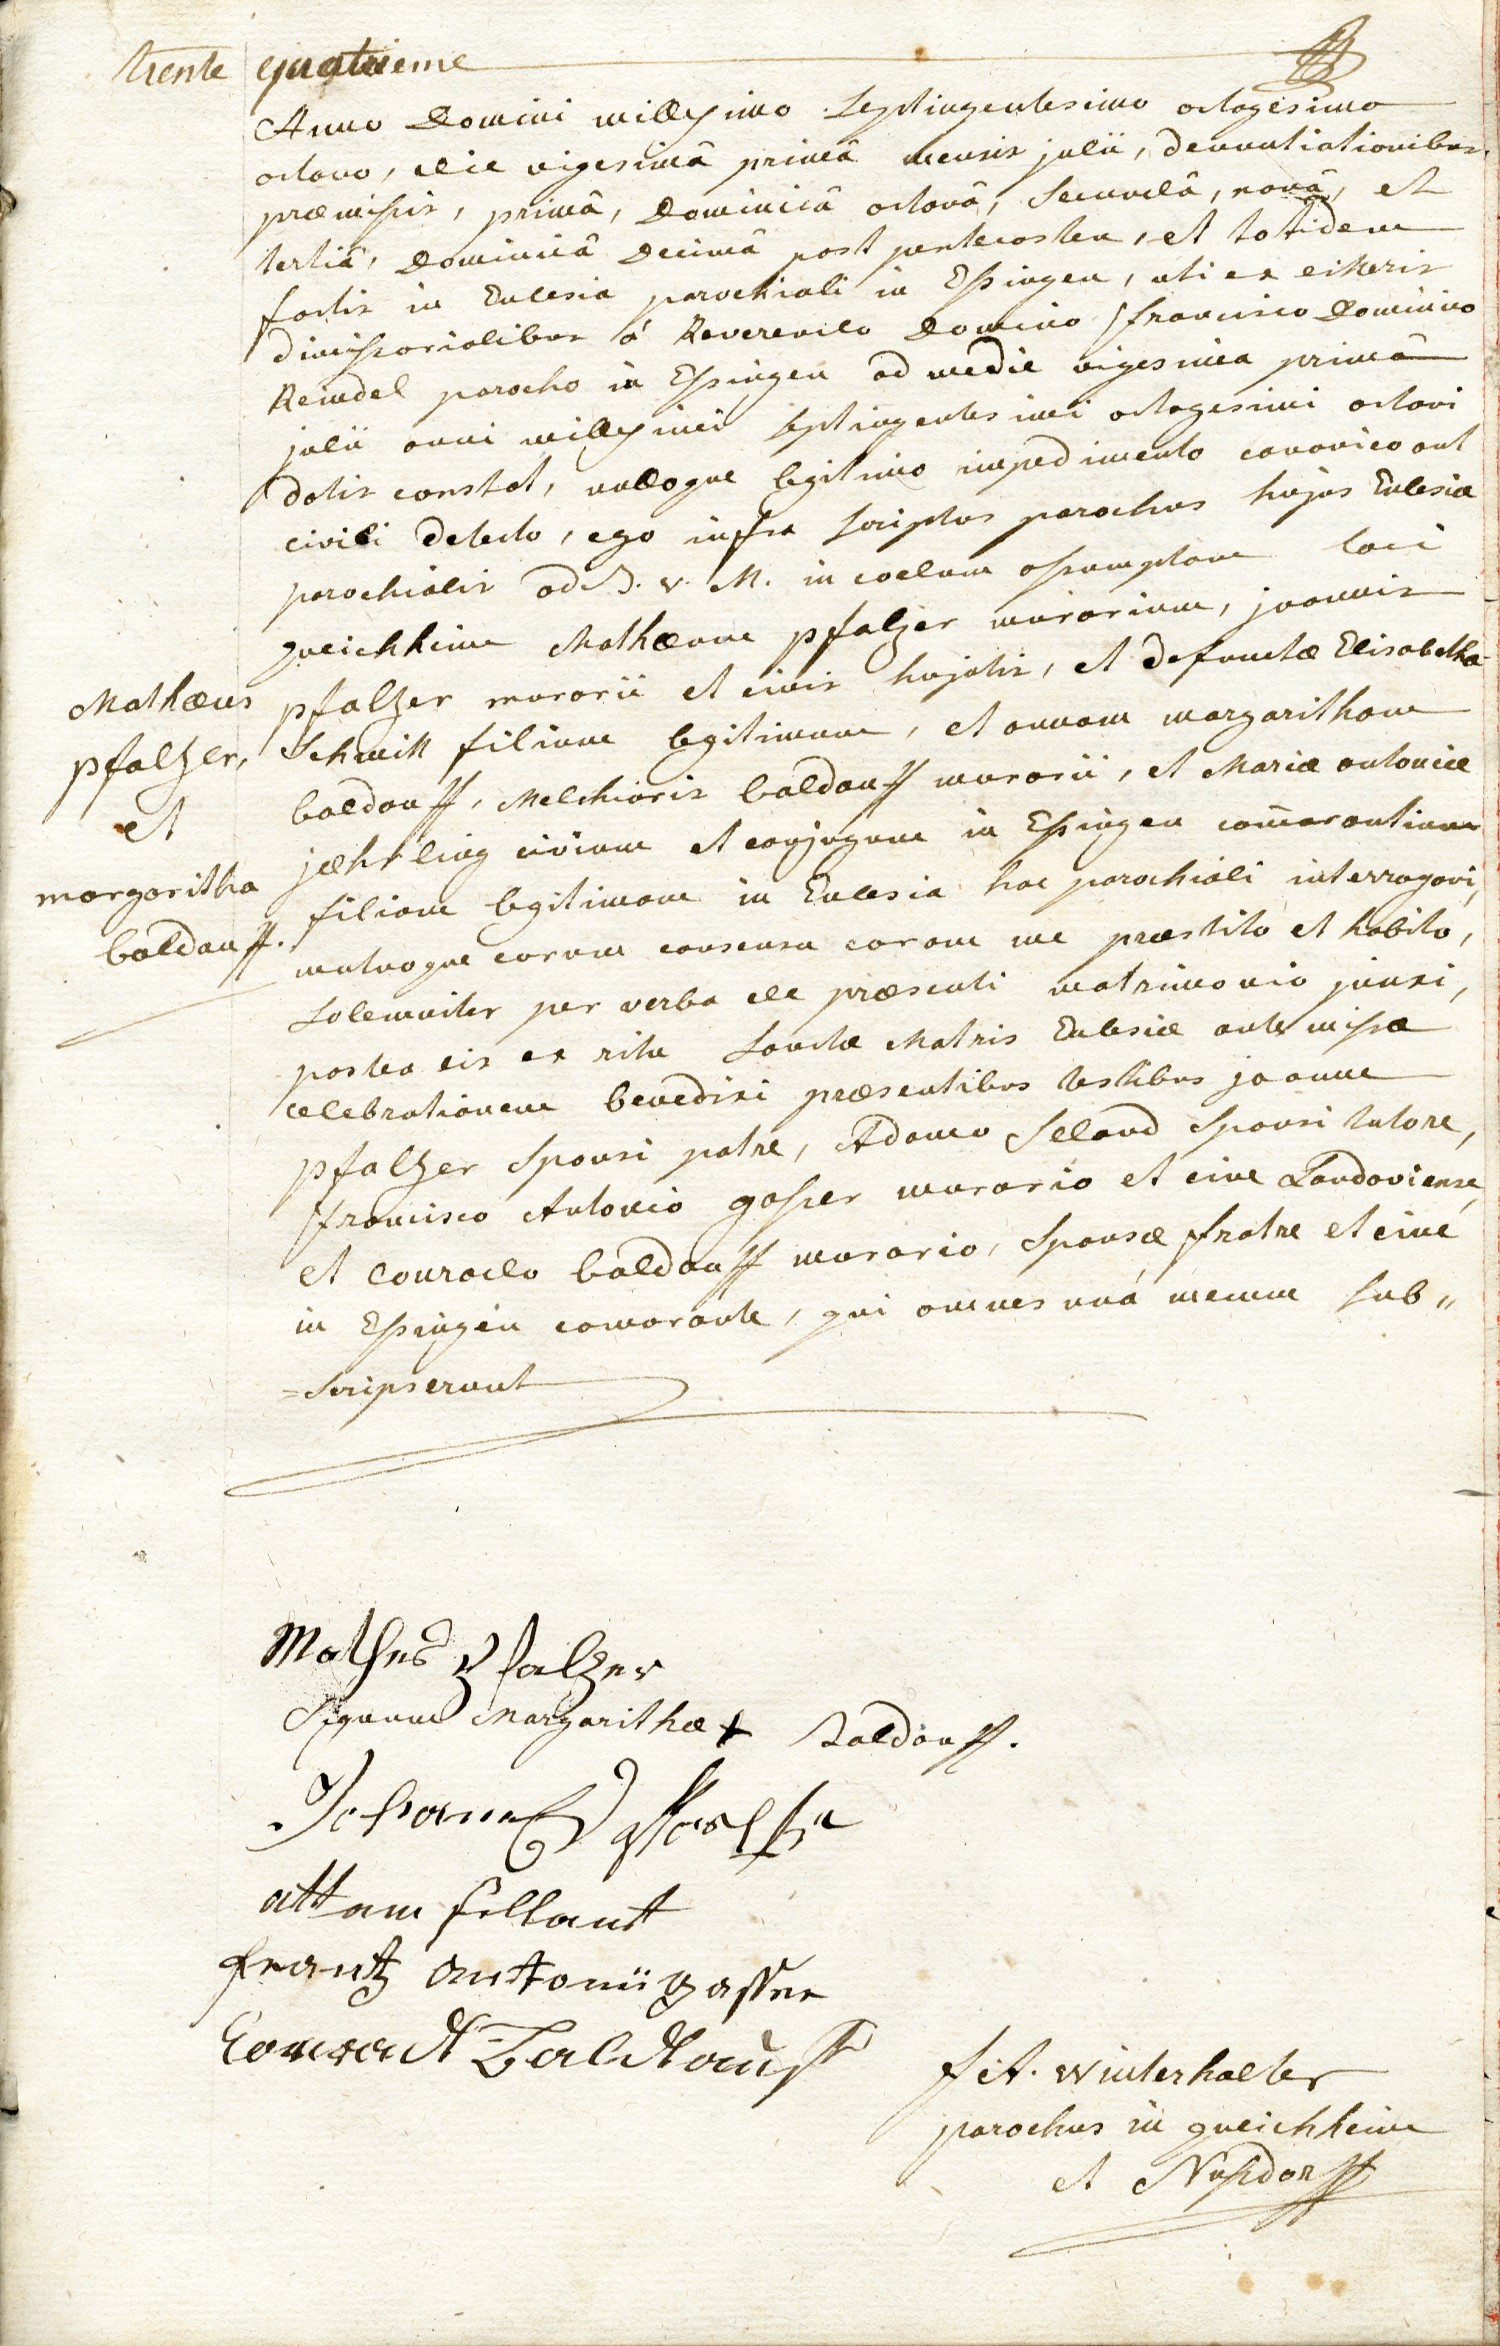 trente quatrieme
Anno Domini millesimo Septingentesimo octogesimo
octavo, die vigesimâ primâ mensis julii, denuntiationibus
præmissis, primâ, Dominicâ octavâ, Secundâ, nonâ, et
tertiâ, Dominicâ Decimâ post pentecosten, et totidem
factis in Ecclesia parochiali in Essingen, uti ex litteris
dimissorialibus à Reverendo Domino francisco Dominico
Reindel parocho in Essingen ad me die vigesima primâ
julii anni millesimi septingentesimi octogesimi octavi
datis constat, nulloque legitimo impedimento canonico aut
civili detecto, ego infra scriptus parochus hujus Ecclesiæ
parochialis ad B. v. M. in coelum assumptam loci
queichheim Mathæum pfalzer murarium, joannis
Mathæus
pfalzer,
et
margaritha
baldauff.
pfalzer murarii et civis hujatis, et defunctæ Elisabetha
Schmitt filium legitimum, et annam margaritham
baldauff, Melchioris baldauff murarii, et Mariæ antoniæ
jæhrling civium et conjugum in Essingen com̄orantium
filiam legitimam in Ecclesia hac parochiali interrogavi,
mutuoque eorum consensu coram me præstito et habito,
Solemniter per verba de præsenti matrimonio junxi,
postea eis ex ritu Sanctæ Matris Ecclesiæ ante missæ
celebrationem benedixi præsentibus testibus joanne
pfalzer Sponsi patre, Adamo Seland Sponsi tutore,
francisco Antonio gasser murario et cive Landaviense,
et Conrado baldauff murario, Sponsæ fratre et cive
in Essingen comorante, qui omnes unà mecum sub〃
=scripserunt
Mathes Pfalzer
Signum Margarithæ + Baldauff.
Johannes
attam fellant
frantz antonii gasser
Conradt Baldtauff
f A. Winterhalter
parochus in queichheim
et Nusdorff